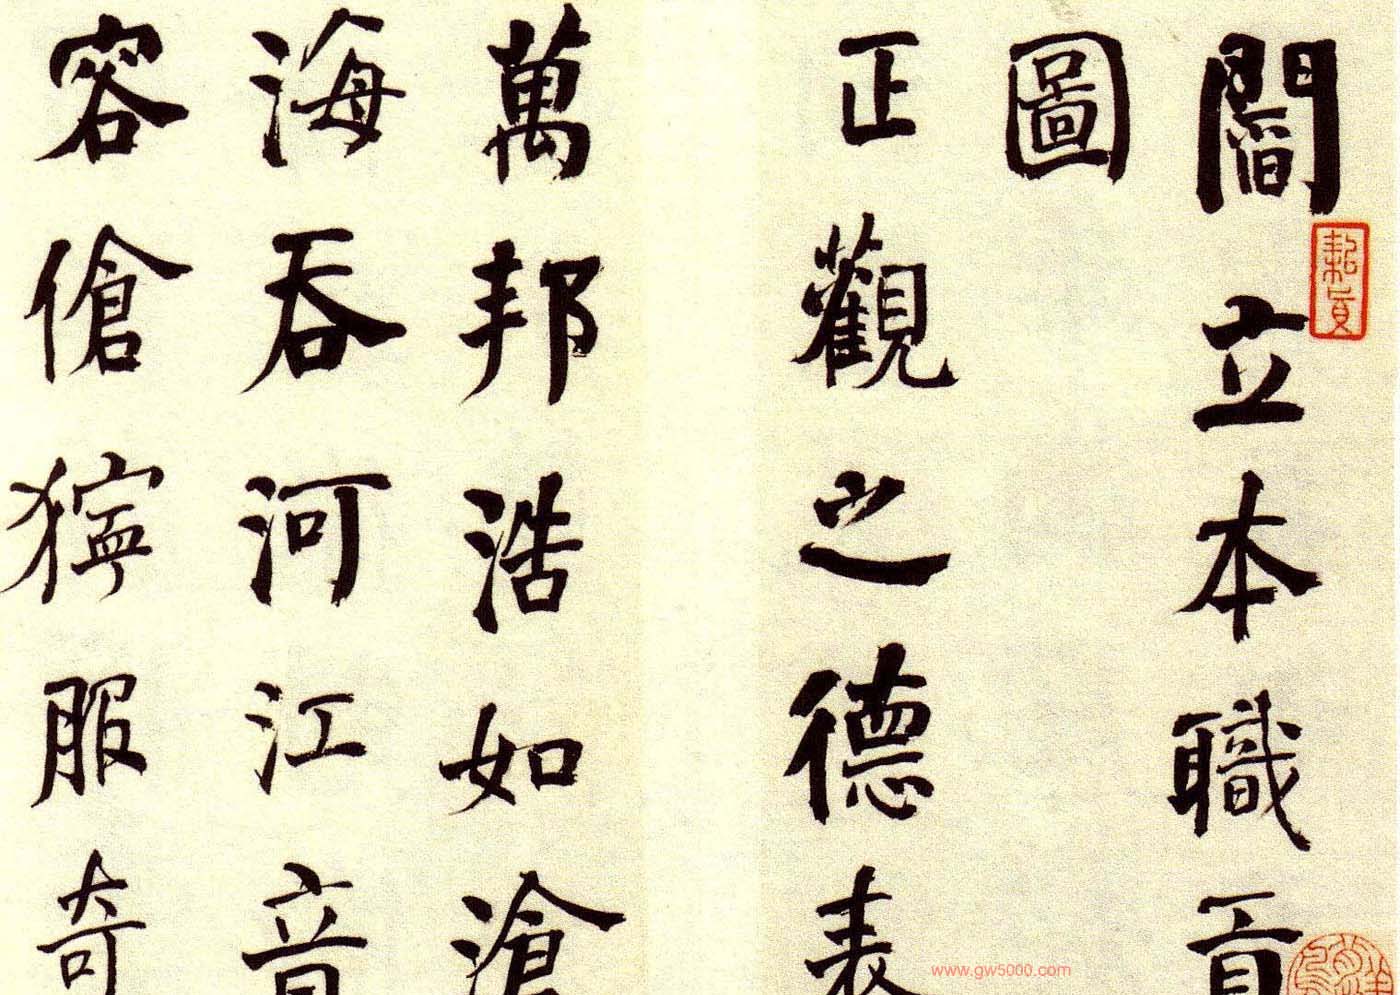 閻立本職貢
圖
正觀之德表
萬邦浩如滄
海吞河江音
容傖獰服奇
www.gw5000.com